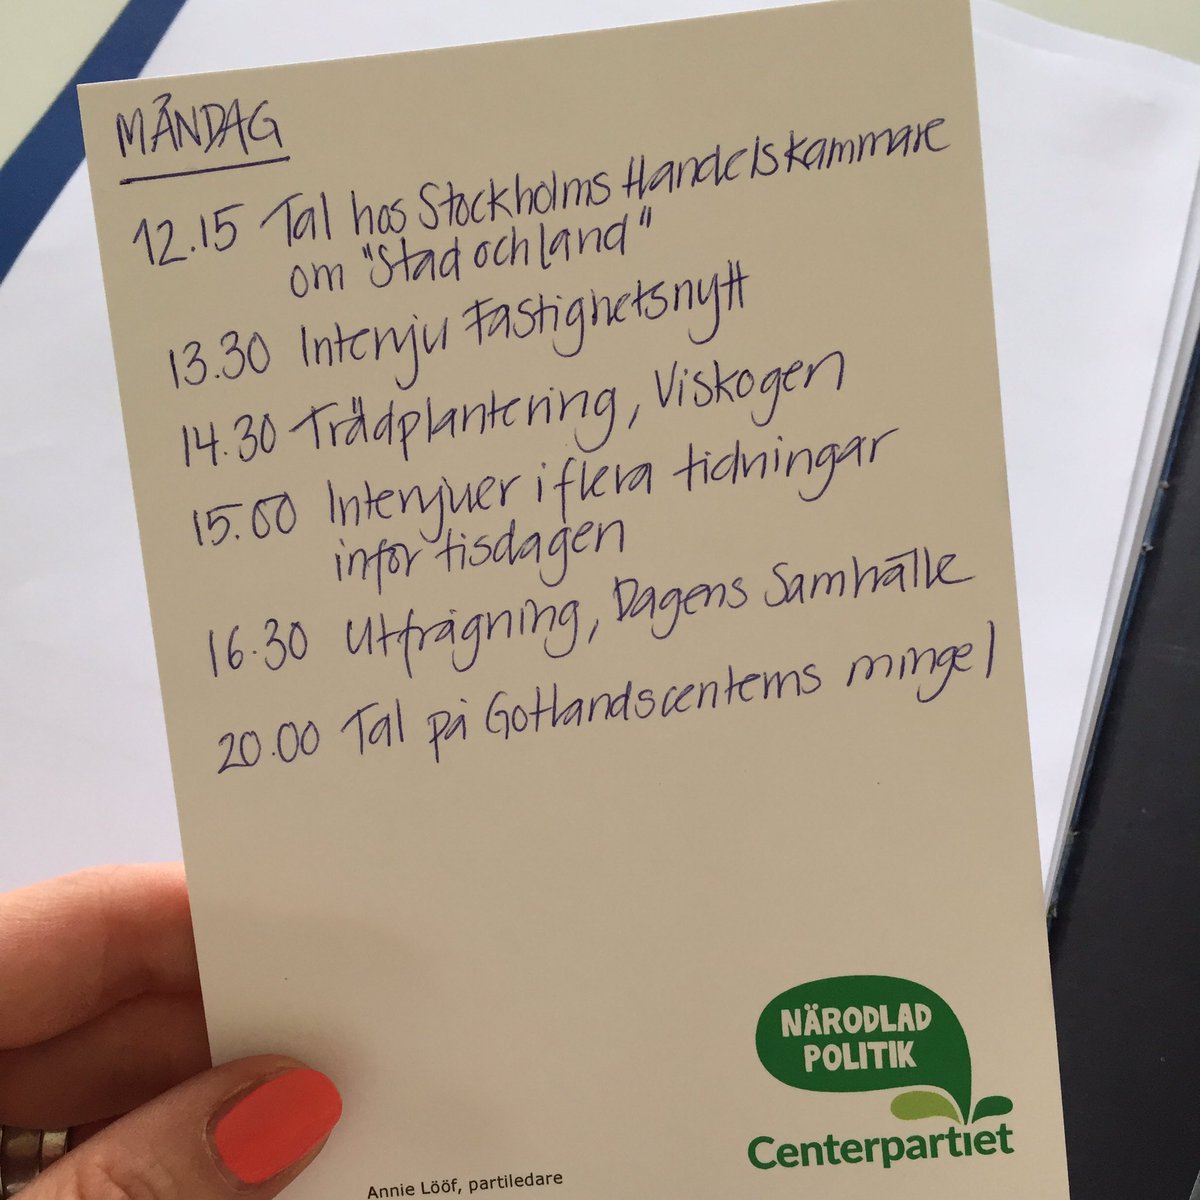 MÅNDAG
12.15 Tal hos Stockholms Handelskammare
om "Stad och land"
13.30 Intervju Fastighetsnytt
14.30 Trädplantering, Viskogen
15.00 Intervjuer i flera tidningar
inför tisdagen
16.30 Utfrågning, Dagens Samhälle
20.00 Tal på Gotlandscenterns mingel
NÄRODLAD
POLITIK
Centerpartiet
Annie Lööf, partiledare